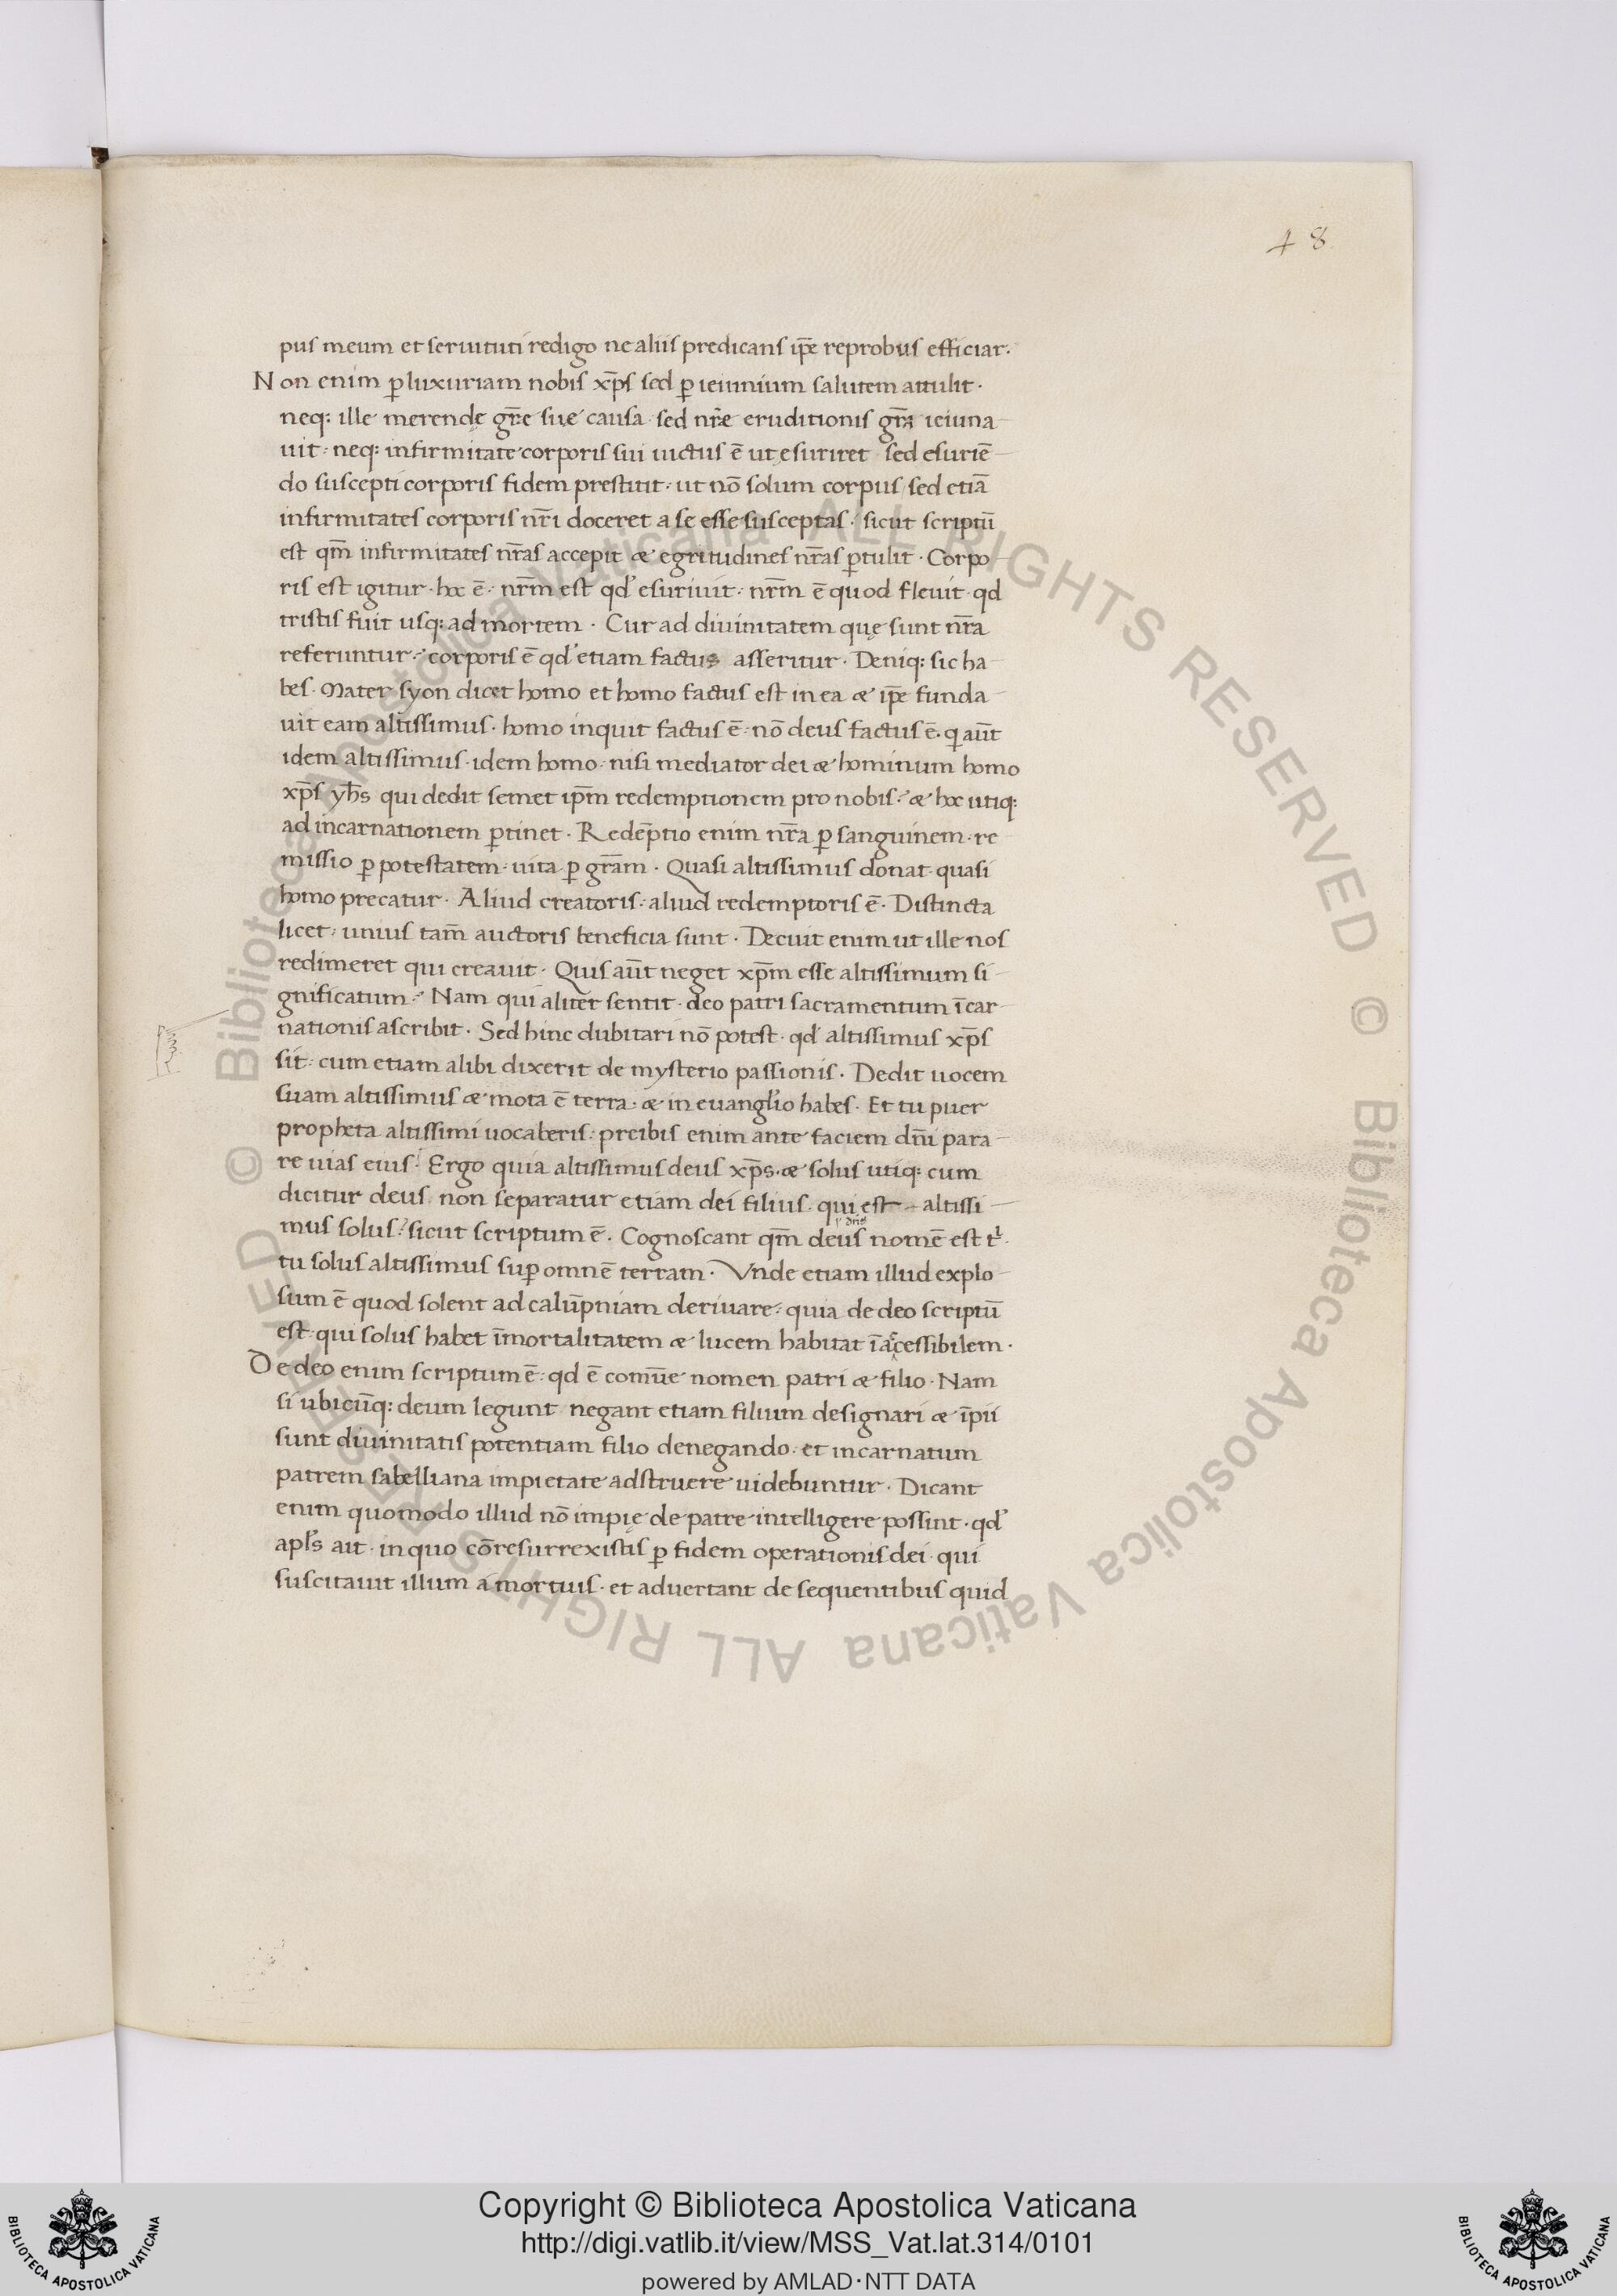 48
pus meum et seruituti redigo ne aliis predicans ip̄e reprobus efficiar.
Non enim ꝑ luxuriam nobis xp̄s sed ꝑ ieiunium salutem attulit·
neq; ille merendę gr̄e suę causa· sed nr̄e eruditionis gr̄a ieiuna-
uit· neq; infirmitate corporis sui uictus ē ut esuriret· sed esuriē-
do suscepti corporis fidem prestitit· ut nō solum corpus sed etiā
infirmitates corporis nr̄i doceret a se esse susceptas· sicut scriptū
est qm̄ infirmitates nr̄as accepit & egritudines nr̄as ꝑtulit· Corpo-
ris est igitur· hoc ē· nr̄m est qd' esuriuit· nr̄m ē quod fleuit· qd
tristis fuit usq; ad mortem· Cur ad diuinitatem quę sunt nr̄a
referuntur? corporis ē qd' etiam factus asseritur· Deniq; sic ha-
bes· Mater syon dicet homo et homo factus est in ea & ip̄e funda-
uit eam altissimus· homo inquit factus ē· nō deus factus ē. qi aūt
idem altissimus· idem homo· nisi mediator dei & hominum homo
xp̄s yh̄s qui dedit semet ip̄m redemptionem pro nobis? & hoc utiq;
ad incarnationem ꝑtinet· Redēptio enim nr̄a ꝑ sanguinem· re-
missio ꝑ potestatem· uita ꝑ gr̄am· Quasi altissimus donat· quasi
homo precatur· Aliud creatoris· aliud redemptoris ē· Distincta
licet· unius tam̄ auctoris beneficia sunt· Decuit enim ut ille nos
redimeret qui creauit· Quis aūt neget xp̄m esse altissimum si-
gnificatum? Nam qui aliter sentit· deo patri sacramentum īcar-
nationis ascribit· Sed hinc dubitari nō potest· qd' altissimus xp̄s
sit· cum etiam alibi dixerit de mysterio passionis· Dedit uocem
suam altissimus & mota ē terra· & in euangl'io habes· Et tu puer
propheta altissimi uocaberis· preibis enim ante faciem dn̄i para-
re uias eius· Ergo quia altissimus deus xp̄s· & solus utiq; cum
dicitur deus· non separatur etiam dei filius· qui est altissi-
mus solus? sicut scriptum ē· Cognoscant qm̄ deus nomē est t'·
tu solus altissimus suꝑ omnē terram· Vnde etiam illud explo-
sum ē quod solent ad calūpniam deriuare· quia de deo scriptū
est· qui solus habet īmortalitatem & lucem habitat īaccessibilem·
De deo enim scriptum ē· qd ē comūe nomen patri & filio· Nam
si ubicūq; deum legunt negant etiam filium designari & īpii
sunt diuinitatis potentiam filio denegando· et incarnatum
patrem sabelliana impietate adstruere uidebuntur· Dicant
enim quomodo illud nō impię de patre intelligere possint· qd'
apl's ait· in quo cōresurrexistis ꝑ fidem operationis dei· qui
suscitauit illum a mortuis· et aduertant de sequentibus quid
© Biblioteca Apostolica Vaticana ALL RIGHTS RESERVED © Biblioteca Apostolica Vaticana ALL RIGHTS RESERVED
Copyright © Biblioteca Apostolica Vaticana
http://digi.vatlib.it/view/MSS_Vat.lat.314/0101
powered by AMLAD·NTT DATA
BIBLIOTECA APOSTOLICA VATICANA
BIBLIOTECA APOSTOLICA VATICANA